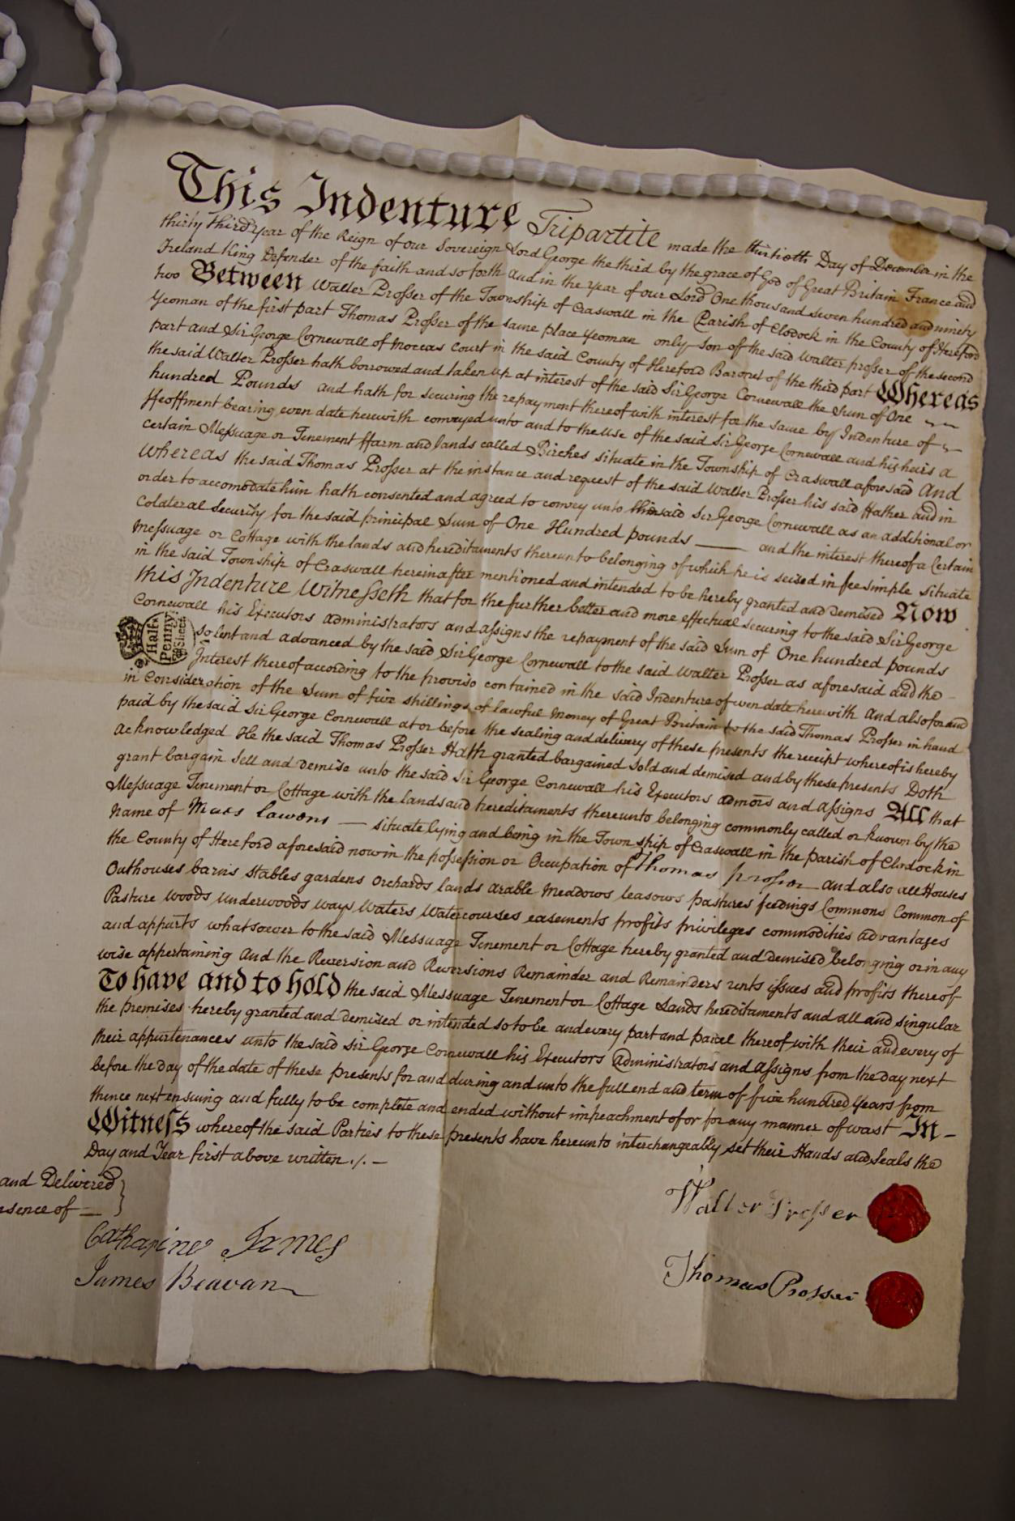 This Indenture Tripartite made the thirtieth Day of December in the
thirty third Year of the Reign of our Sovereign Lord George the third by the grace of God of Great Britain France and
Ireland King Defender of the faith and so forth And in the Year of our Lord One thousand seven hundred and ninety
two Between Walter Prosser of the Township of Craswall in the Parish of Clodock in the County of Hereford
Yeoman of the first part Thomas Prosser of the same place Yeoman only son of the said Walter prosser of the second
part and Sir George Cornewall of Moccas Court in the said County of Hereford Baronet of the third part Whereas
the said Walter Prosser hath borrowed and taken up at interest of the said Sir George Cornewall the Sum of One
hundred Pounds and hath for securing the repayment thereof with interest for the same by Indenture of
ffeoffment bearing even date herewith conveyed unto and to the Use of the said Sir George Cornewall and his heirs a
certain Messuage or Tenement ffarm and lands called Birches situate in the Township of Craswall aforesaid And
Whereas the said Thomas Prosser at the instance and request of the said Walter Prosser his said ffather and in
order to accomodate him hath consented and agreed to convey unto the said Sir George Cornewall as an additional or
Colateral security for the said principal Sum of One Hundred pounds — and the interest thereof a Certain
Messuage or Cottage with the lands and hereditaments thereunto belonging of which he is seized in fee simple situate
in the said Township of Craswall hereinafter mentioned and intended to be hereby granted and demised Now
this Indenture Witnesseth that for the further better and more effectual securing to the said Sir George
Cornewall his Executors administrators and assigns the repayment of the said Sum of One hundred pounds
Half Penny Sheet
so lent and advanced by the said Sir George Cornewall to the said Walter Prosser as aforesaid and the
Interest thereof according to the proviso contained in the said Indenture of even date herewith And also for and
in Consideration of the Sum of five shillings of lawful Money of Great Britain to the said Thomas Prosser in hand
paid by the said Sir George Cornewall at or before the sealing and delivery of these presents the receipt whereof is hereby
acknowledged He the said Thomas Prosser Hath granted bargained Sold and demised and by these presents Doth
grant bargain Sell and Demise unto the said Sir George Cornewall his Executors admors and Assigns All that
Messuage Tenement or Cottage with the lands and hereditaments thereunto belonging commonly called or known by the
Name of — situate lying and being in the Township of Craswall in the Parish of Clodock in
the County of Hereford aforesaid now in the possession or Occupation of Thomas prosser and also all Houses
Outhouses barns Stables gardens Orchards lands arable meadows leasows pastures feedings Commons Common of
Pasture woods Underwoods ways Waters Watercourses easements profits privileges commodities advantages
and appurts whatsoever to the said Messuage Tenement or Cottage hereby granted and demised belonging or in any
wise appertaining And the Reversion and Reversions Remainder and Remainders rents issues and profits thereof
To have and to hold the said Messuage Tenement or Cottage Lands hereditaments and all and singular
the premises hereby granted and demised or intended so to be and every part and parcel thereof with their and every of
their appurtenances unto the said Sir George Cornewall his Executors Administrators and Assigns from the day next
before the day of the date of these presents for and during and unto the full end and term of five hundred Years from
thence next ensuing and fully to be complete and ended without impeachment of or for any manner of wast In-
Witness whereof the said Parties to these presents have hereunto interchangeably set their Hands and Seals the
Day and Year first above written ./. —
and Delivered
sence of —
Walter Prosser
Catharine James
James Beavan
Thomas Prosser